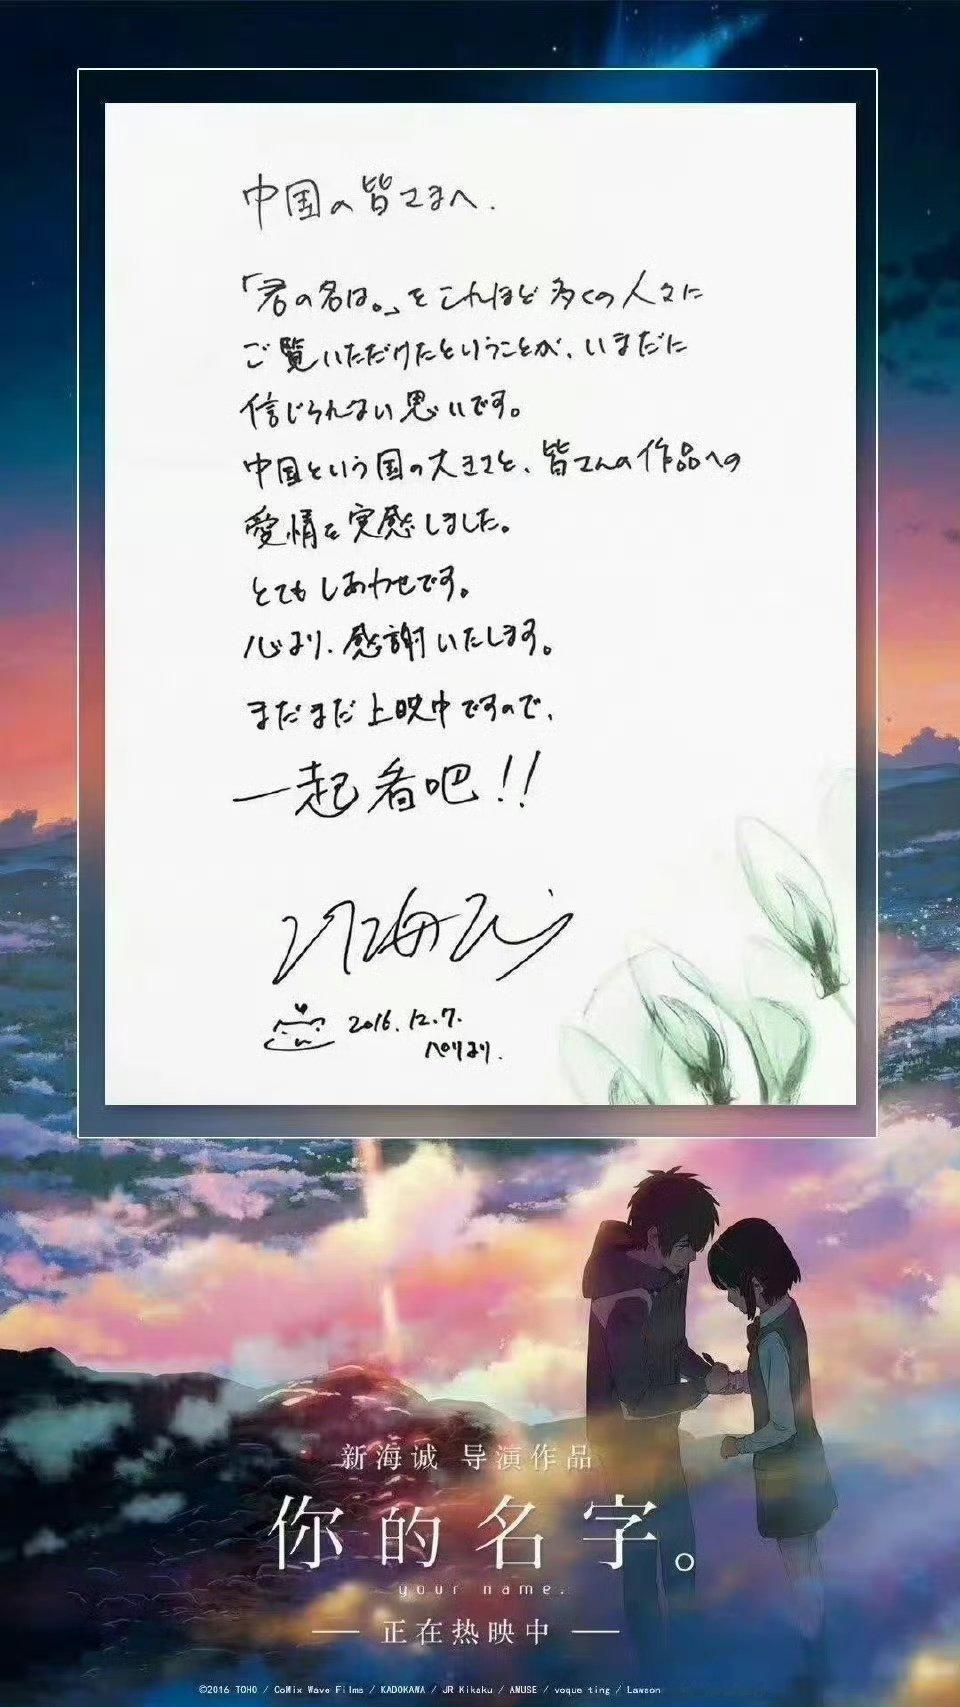 中国の皆さまへ.
「君の名は。」をこれほど多くの人々に
ご覧いただけたということが、いまだに
信じられない思いです。
中国という国の大きさと、皆さんの作品への
愛情を実感しました。
とてもしあわせです。
心より、感謝いたします。
まだまだ上映中ですので、
一起看吧!!
新海誠
2016.12.7.
パリより.
新海诚 导演作品
你的名字。
your name.
正在热映中
©2016 TOHO / CoMix Wave Films / KADOKAWA / JR Kikaku / AMUSE / voque ting / Lawson